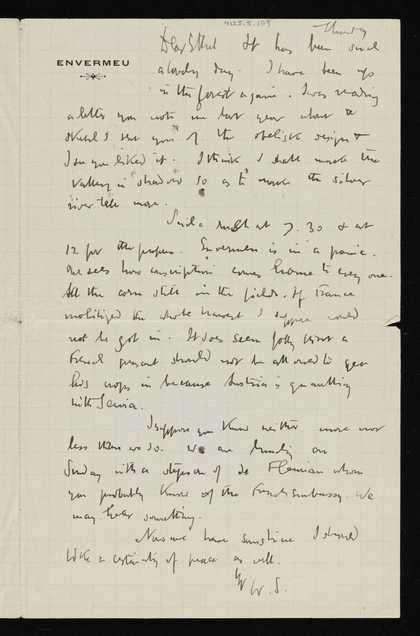 4125.5.109
Thursday
Dear Ethel It has been such
ENVERMEU
a lovely day. I have been up
in the forest again. I was reading
a letter you wrote me last year about a
sketch I sent you of the obelisk design &
I see you liked it. I think I shall make the
valley in shadow so as to make the silver
river tell more.
Such a rush at 7.30 & at
12 for the papers. Envermeu is in a panic.
One sees how conscription comes home to every one.
All the corn still in the fields. If France
mobilized the whole harvest I suppose would
not be got in. It does seem folly that a
French peasant should not be allowed to get
his crops in because Austria is quarrelling
with Servia.
I suppose you know neither more nor
less than we do. We are lunching on
Sunday with a stepson of de whom
you probably know of the French Embassy. We
may hear something.
Now we have sunshine I should
like a certainty of peace as well.
Yr W. S.